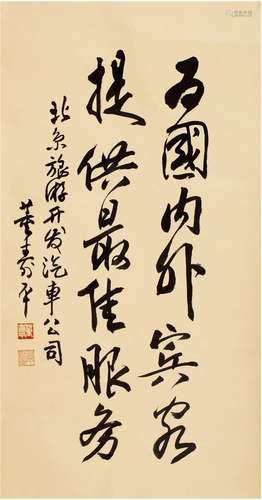 为國内外宾客
提供最佳服务
北京旅游开发汽車公司
董壽平